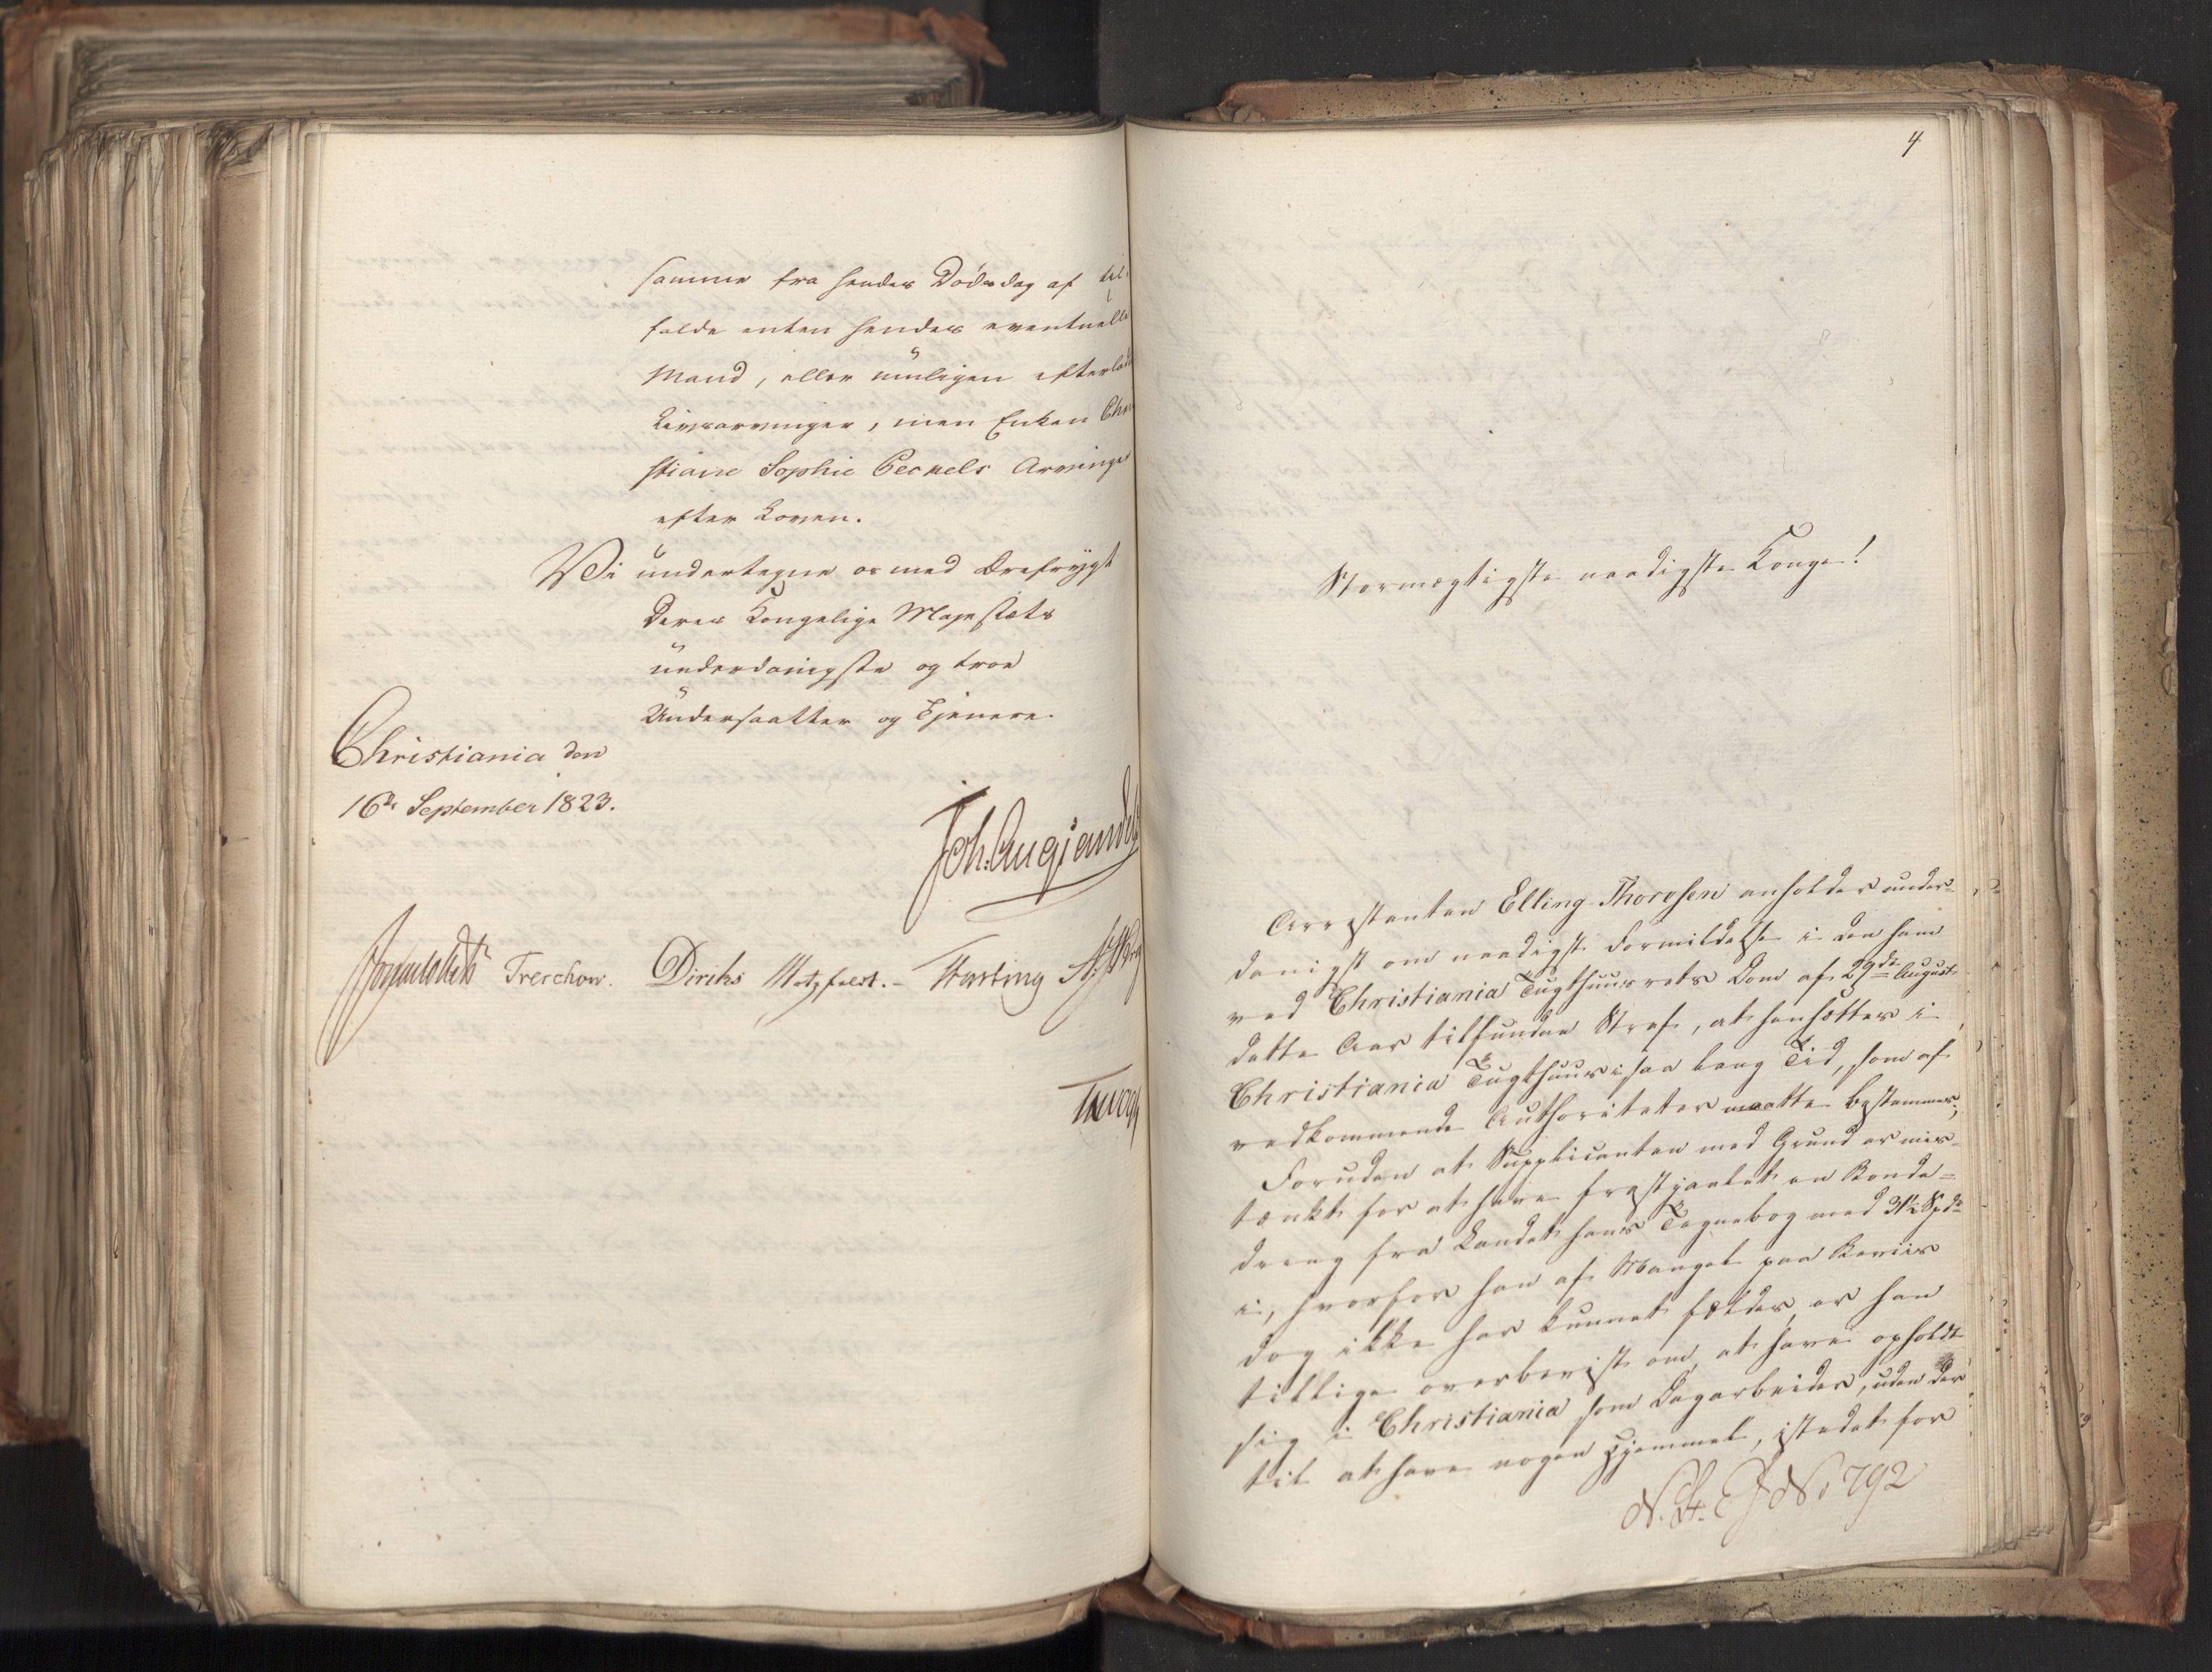 samme fra hendes Dödsdag af til
falde enten hendes eventuelle
Mand, eller muligen efterlad
Livsarvinger, men Enken Chri
stiane Sophie Peckels Arvinger
efter Loven.
Vi undertegne os med Ærefrygt
Deres Kongelige Majestæts
underdanigste og troe
Undersaatter og Tjenere.
Christiania den
16de September 1823.
Joh: Aug Sandels
Sommerhielm Treschow. Diriks Motzfeldt. Fasting
4
Stormægtigste naadigste Konge!
Arrestanten Elling Thoresen anholder under-
danigst om naadigst Formildelse i den ham
ved Christiania Tugthuusrets Dom af 29de August
dette Aar tilfundne Straf, at hensættes i
Christiania Tugthuus i saa lang Tid, som af
vedkommende Authoriteter maatte bestemmes,
Foruden at Supplicanten med Grund er mis-
tænkt for at have frastjaalet en Bonde-
dreng fra Landet hans Tegnebog med 31½ Spd
i, hvorfor han af Mangel paa Beviis
dog ikke har kunnet fældes, er han
tillige overbevist om, at have opholdt
sig i Christiania som Dagarbeider, uden der
til at have nogen Hjemmel, istedet for
No 792